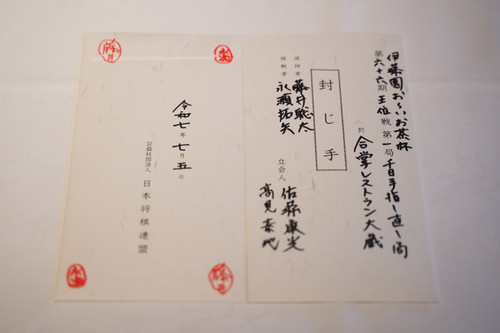 伊藤園お〜いお茶杯
第六十六期王位戦第一局千日手指し直し局
於 合掌レストラン大蔵
封じ手
保持者 藤井聡太
挑戦者 永瀬拓矢
立会人 佐藤康光
高見泰地
令和七年七月五日
公益社団法人 日本将棋連盟